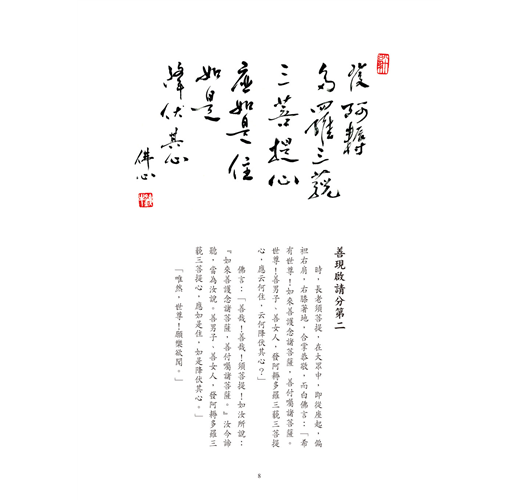 發阿耨
多羅三藐
三菩提心
應如是住
如是
降伏其心
善現啟請分第二
時,長老須菩提,在大眾中,即從座起,偏
袒右肩,右膝著地,合掌恭敬,而白佛言:「希
有世尊!如來善護念諸菩薩,善付囑諸菩薩。
世尊!善男子、善女人,發阿耨多羅三藐三菩提
心,應云何住,云何降伏其心?」
佛言:「善哉!善哉!須菩提!如汝所說:
『如來善護念諸菩薩,善付囑諸菩薩。』汝今諦
聽,當為汝說。善男子、善女人,發阿耨多羅三
藐三菩提心,應如是住,如是降伏其心。」
「唯然,世尊!願樂欲聞。」
8